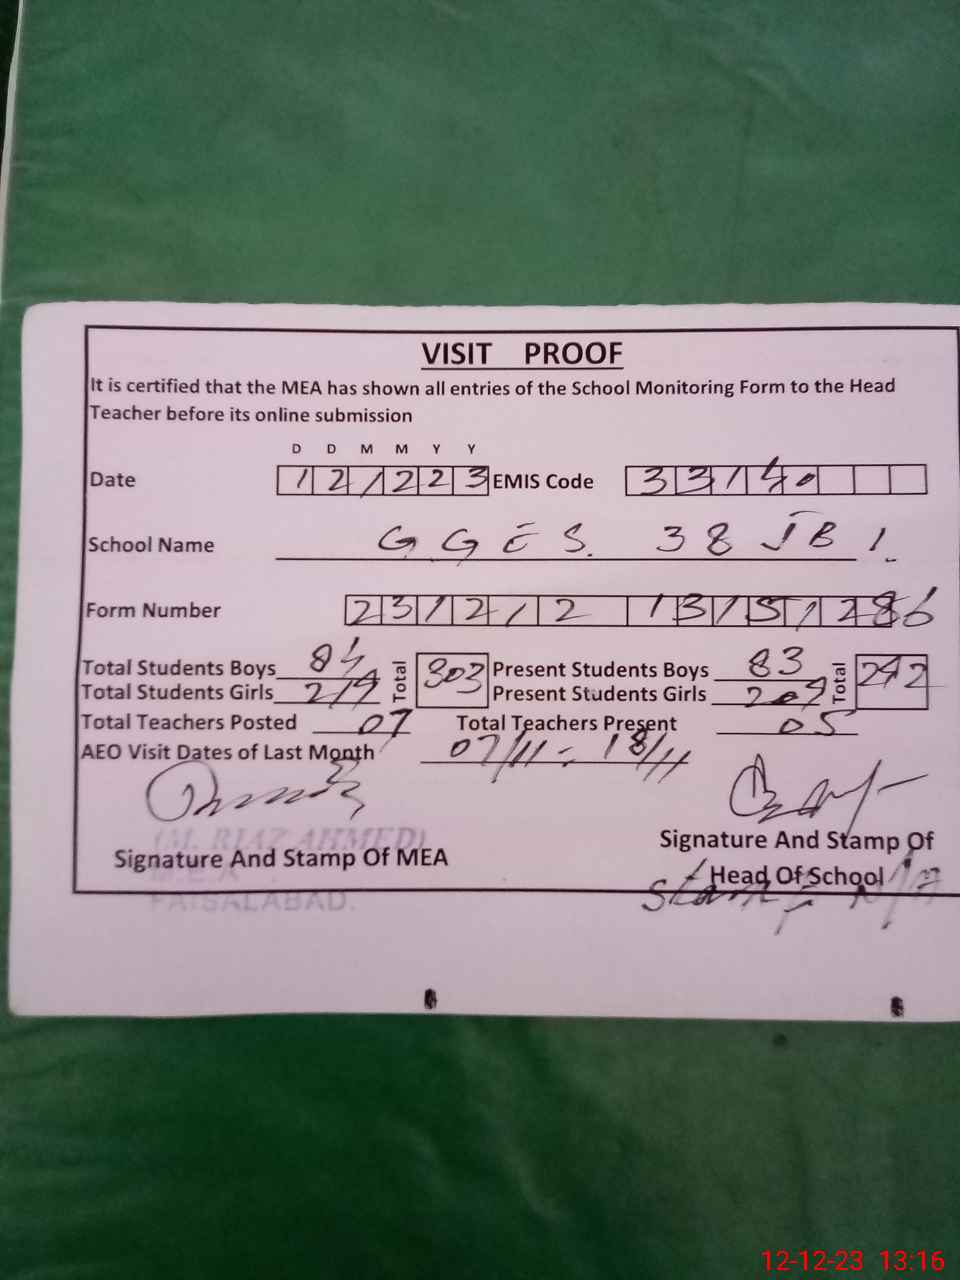 VISIT PROOF
It is certified that the MEA has shown all entries of the School Monitoring Form to the Head
Teacher before its online submission
D D M M Y Y
Date 121223 EMIS Code 33140
School Name GGES. 38 JB 1.
Form Number
Total Students Boys 84 Total 303 Present Students Boys 83 Total 292
Total Students Girls 219 Present Students Girls 209
Total Teachers Posted 07 Total Teachers Present 05
AEO Visit Dates of Last Month 07/11 - 18/11
(M. RIAZ AHMED)
Signature And Stamp Of MEA
M.E.A
FAISALABAD.
Signature And Stamp Of
Head Of School
Stamp N/A
12-12-23 13:16